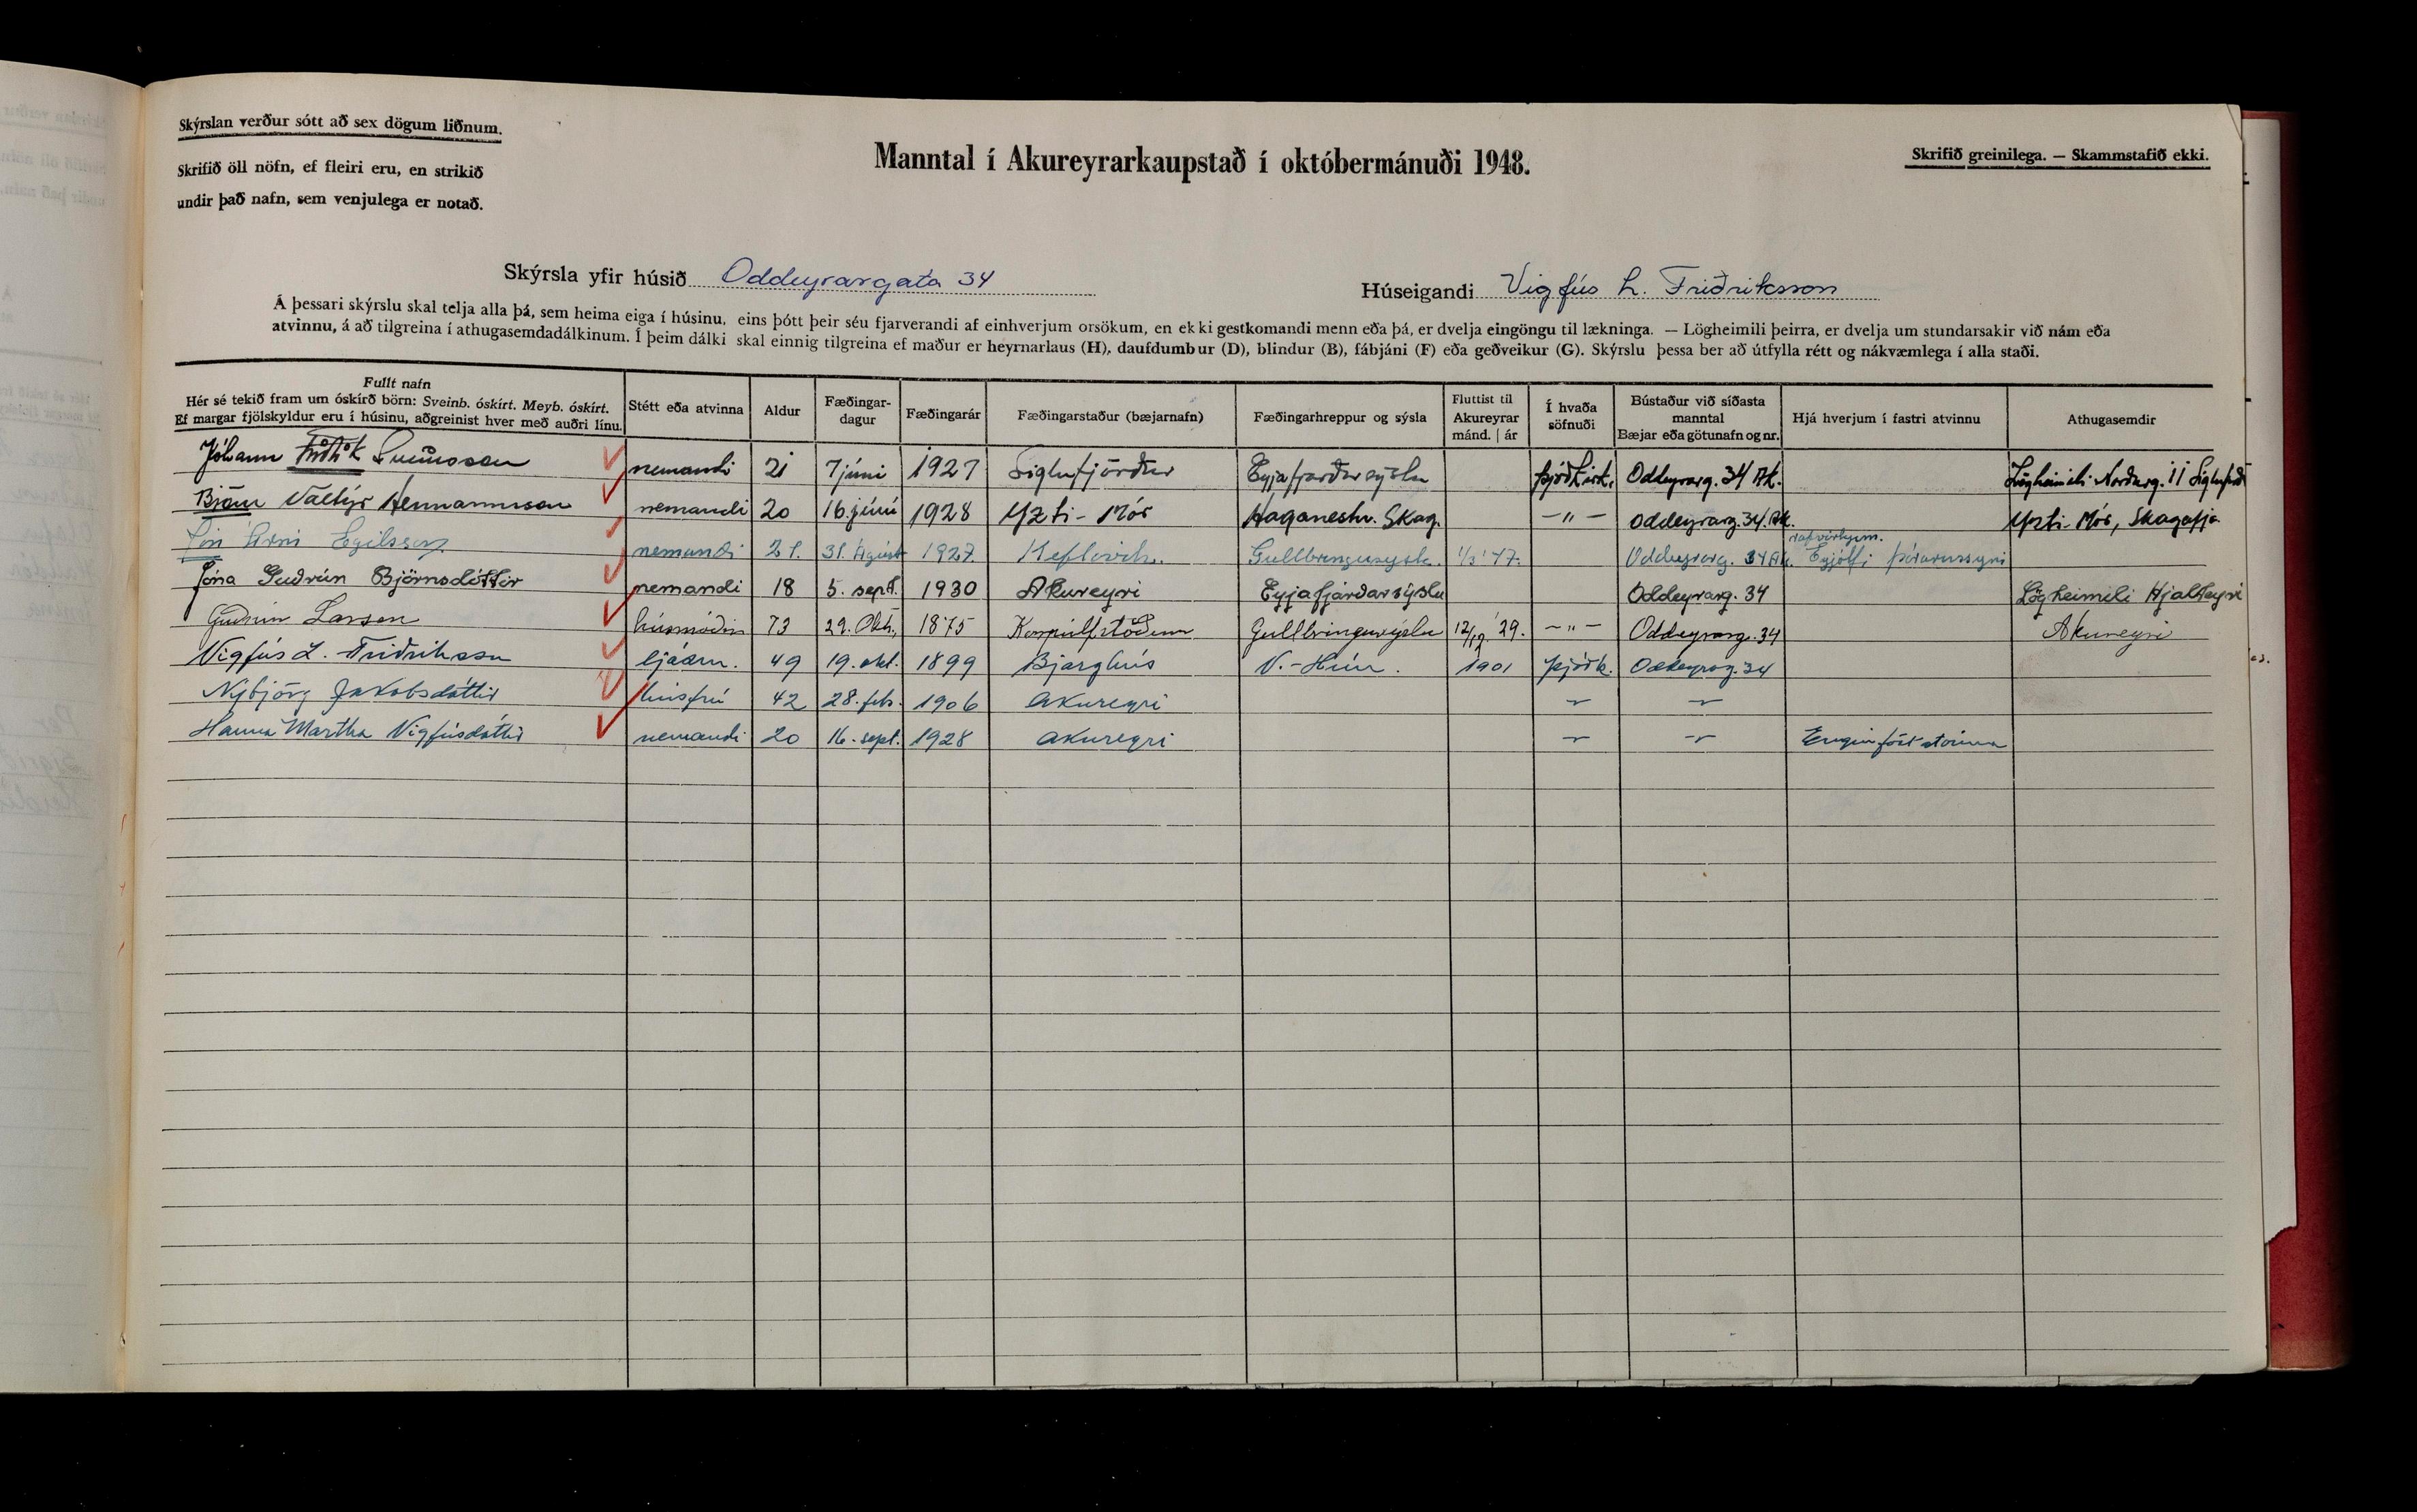 Skýrslan verður sótt að sex dögum liðnum.
Skrifið öll nöfn, ef fleiri eru, en strikið
undir það nafn, sem venjulega er notað.
Manntal í Akureyrarkaupstað í októbermánuði 1948.
Skrifið greinilega. — Skammstafið ekki.
Skýrsla yfir húsið Oddeyrargata 34
Húseigandi Vigfús L. Friðriksson
Á þessari skýrslu skal telja alla þá, sem heima eiga í húsinu, eins þótt þeir séu fjarverandi af einhverjum orsökum, en ekki gestkomandi menn eða þá, er dvelja eingöngu til lækninga. — Lögheimili þeirra, er dvelja um stundarsakir við nám eða
atvinnu, á að tilgreina í athugasemdadálkinum. Í þeim dálki skal einnig tilgreina ef maður er heyrnarlaus (H), daufdumbur (D), blindur (B), fábjáni (F) eða geðveikur (G). Skýrslu þessa ber að útfylla rétt og nákvæmlega í alla staði.
Fullt nafn
Hér sé tekið fram um óskírð börn: Sveinb. óskírt. Meyb. óskírt.
Ef margar fjölskyldur eru í húsinu, aðgreinist hver með auðri línu.
Stétt eða atvinna
Aldur
Fæðingar-
dagur
Fæðingarár
Fæðingarstaður (bæjarnafn)
Fæðingarhreppur og sýsla
Fluttist til
Akureyrar
mánd. | ár
Í hvaða
söfnuði
Bústaður við síðasta
manntal
Bæjar eða götunafn og nr.
Hjá hverjum í fastri atvinnu
Athugasemdir
Jóhann Friðrik nemandi 21 7 júní 1927 Siglufjörður Eyjafjarðarsýslu þjóðkirk. Oddeyrarg. 34 Ak. Lögheimili Norðurg. 11 Siglufirði
Björn Valtýr Hermannsson nemandi 20 16. júní 1928 Yzti-Mór Haganeshr. Skag. —〃— Oddeyrarg. 34 Ak. Yzti-Mór, Skagafj.
Jón Árni Egilsson nemandi 21. 31. Ágúst 1927. Keflavík. Gullbringusýsla. 1/3 '47. Oddeyrarg. 34 Ak. rafvirkjam. Eyjólfi Þórarinssyni
Jóna Guðrún Björnsdóttir nemandi 18 5. sept. 1930 Akureyri Eyjafjarðarsýslu Oddeyrarg. 34 Lögheimili Hjalteyri
Guðrún Larsen húsmóðir 73 29. Okt. 1875 Korpúlfstöðum Gullbringusýslu 12/12 '29. —〃— Oddeyrarg. 34 Akureyri
Vigfús L. Friðriksson ljósm. 49 19. okt. 1899 Bjarghús V.-Hún. 1901 þjóðk. Oddeyrarg. 34
Nýbjörg Jakobsdóttir húsfrú 42 28. feb. 1906 Akureyri
Hanna Martha Vigfúsdóttir nemandi 20 16. sept. 1928 Akureyri Engin föst atvinna